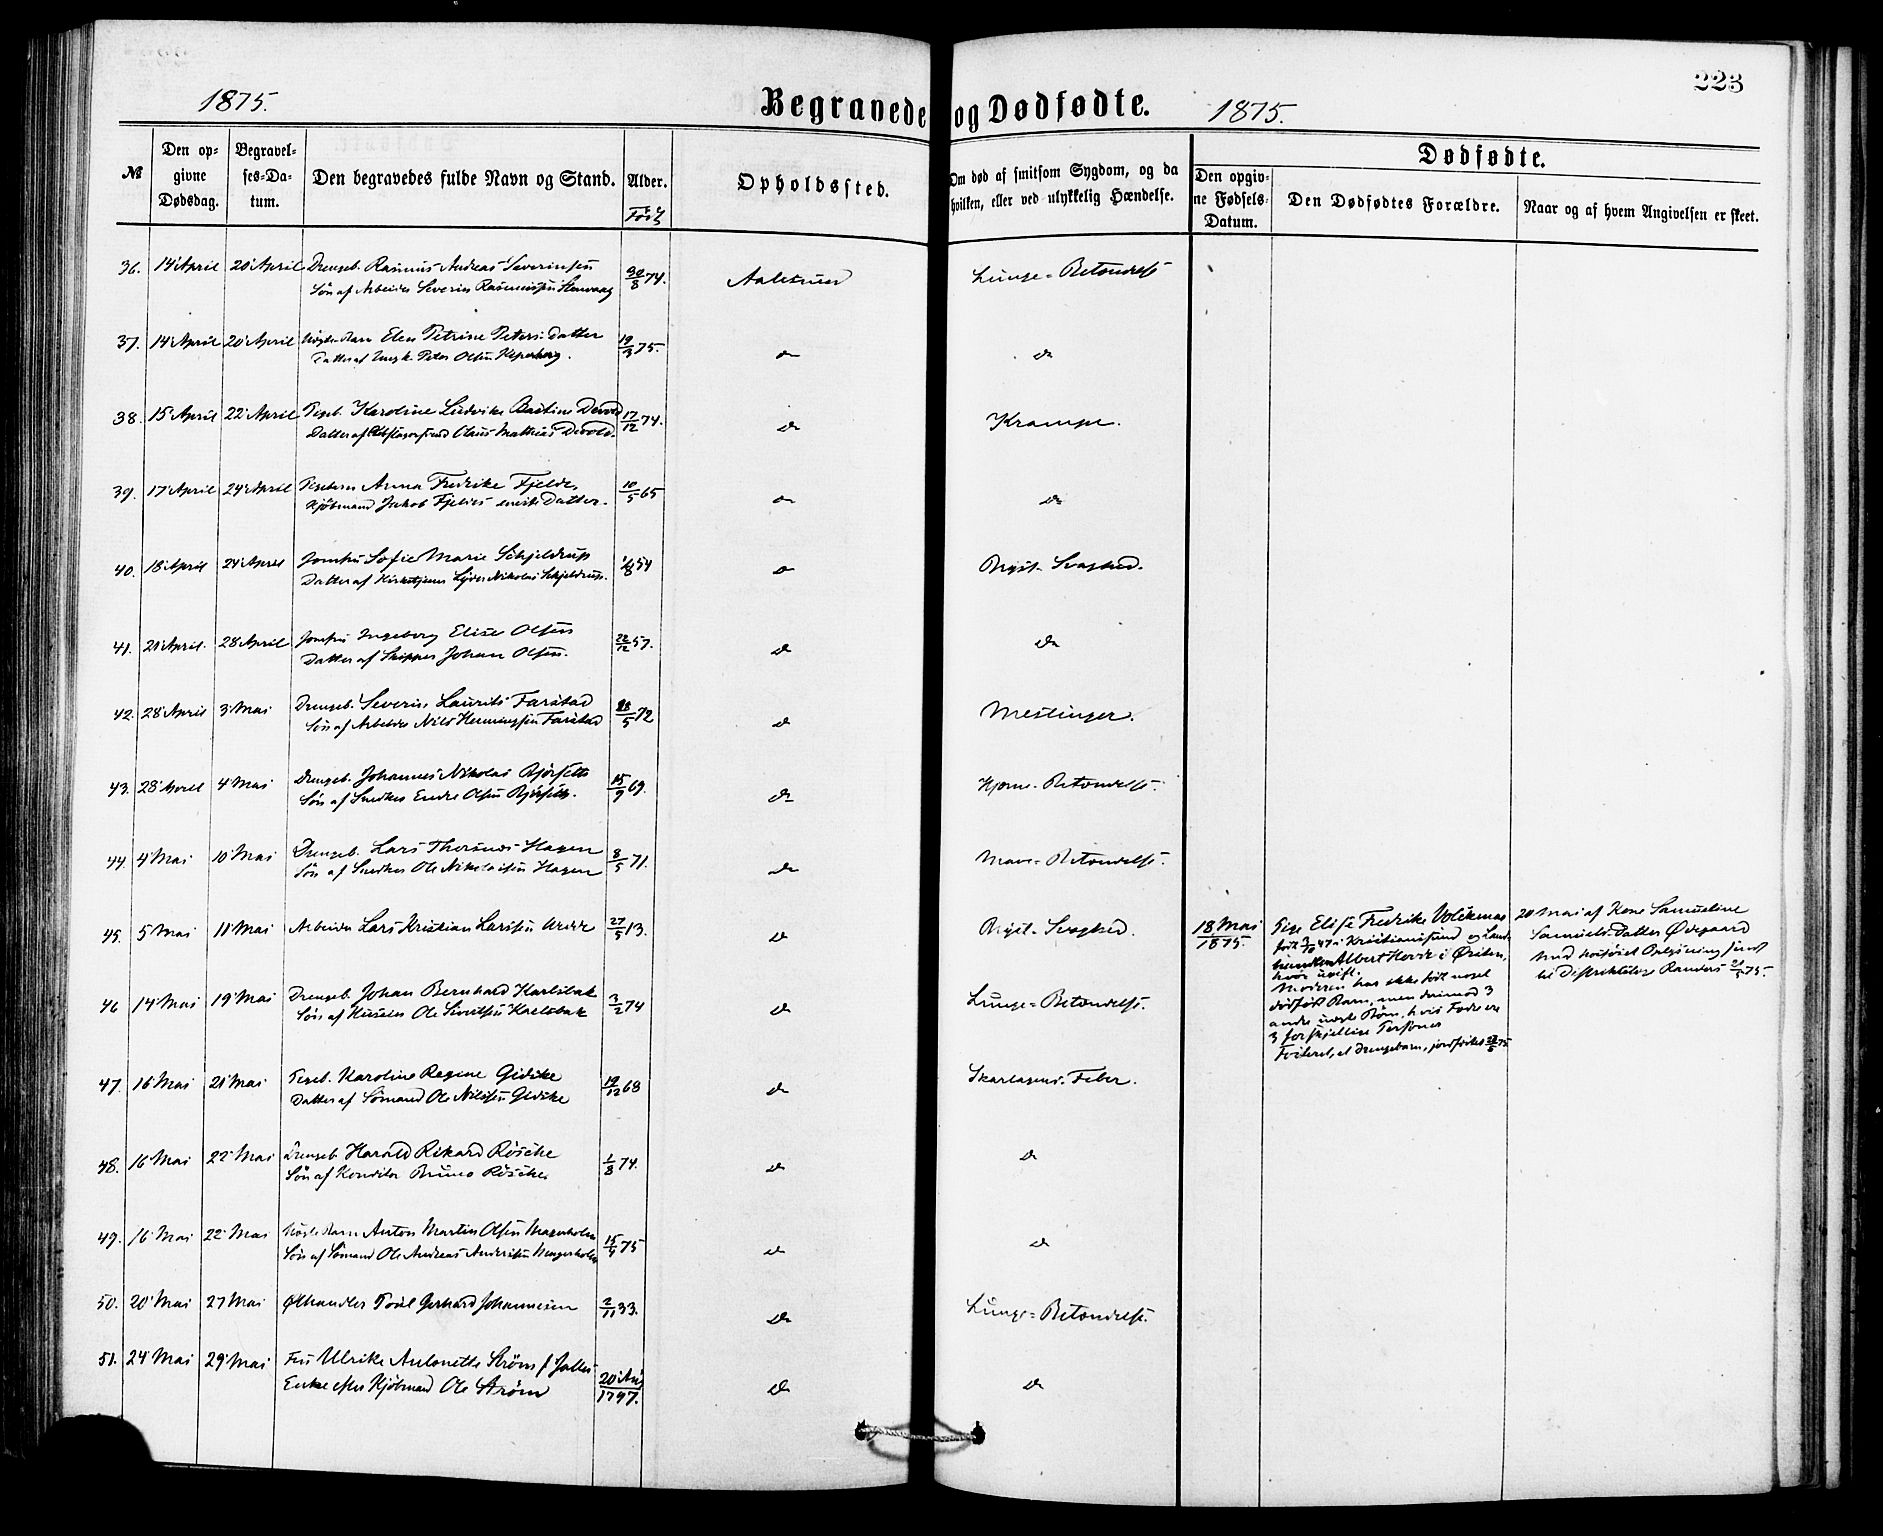 1875.
Begravede og Dødfødte.
1875.
223
№
Den op-
givne
Dødsdag.
Begravel-
ses-Da-
tum.
Den begravedes fulde Navn og Stand.
Alder.
Født
Opholdssted.
Om død af smitsom Sygdom, og da
hvilken, eller ved ulykkelig Hændelse.
Dødfødte.
Den opgiv-
ne Fødsels-
Datum.
Den Dødfødtes Forældre.
Naar og af hvem Angivelsen er skeet.
36. 14 April 20 April Drengeb. Rasmus Andreas Severinsen 30/8 74. Aalesund Lunge-Betændelse
Søn af Arbeider Severin Rasmussen
37. 14 April 20 April Elen Petrine Peters Datter 19/3 75. do do
Datter af Ungk. Peter Olsen
38. 15 April 22 April Pigeb. Karoline Ludvike Bastine Devold 17/12 74. do Krampe.
Datter af Claus Mathias Devold.
39. 17 April 24 April Pigebarn Anna Fredrike Fjelde, 10/5 65 do do
Kjøbmand Jakob Fjeldes eneste Datter.
40. 18 April 24 April Jomfru Sofie Marie Schjeldrup /8 54 do Bryst-Svaghed.
Datter af Nikolai Schjeldrup.
41. 21 April. 28 April Jomfru Ingeborg Elise Olsen 22/12 57. do do
Datter af Skipper Johan Olsen.
42. 28 April 3 Mai Drengeb. Severin Laurits Farstad /5 72 do Meslinger.
Søn af Arbeider Nils Henningsen Farstad
43. 28 April 4 Mai Drengeb. Johannes Nikolai 15/9 69. do Hjerne-Betændelse.
Søn af Snedker Endre Olsen
44. 4 Mai 10 Mai Drengeb. Lars Thorsnes Hagen 8/5 71. do Mave-Betændelse.
Søn af Snedker Ole Nikolaisen Hagen
45. 5 Mai 11 Mai Arbeider Lars Kristian Larssen 27/5 13. do Bryst-Svaghed.
46 14 Mai 19 Mai Drengeb. Johan Bernhard Karlsbak 3/2 74 do Lunge-Betændelse.
Søn af Ole Karlsbak
47. 16 Mai 21 Mai Pigeb. Karoline Regine Gidske 19/12 68 do Skarlagens-Feber.
Datter af Sømand Ole Nilssen Gidske
48. 16 Mai 22 Mai Drengeb. Harald Rikard Rösche 1/8 74. do do
Søn af Konditor Bruno Rösche
49. 16 Mai 22 Mai Anton Martin Olsen 15/4 75 do do
Søn af Sømand Ole Andreas Anderssen
50. 20 Mai 27 Mai Ølhandler Poul Gerhard Johannesen 2/11 33. do Lunge-Betændelse.
51. 24 Mai 29 Mai Fru Ulrike Antonette Strøm f. 20 /1797. do do
Enke efter Kjøbmand Ole Strøm
18 Mai
1875.
Pige Elise Fredrike
født 47 i Kristiansund og
Albert i Ørsten,
hvor ugift.
Moderen har ikke født noget
dødfødt Barn, men derimod 3
andre uægte Børn, hvis Fædre ere
3 forskjellige Personer
Fosteret, et Drengebarn, jordfæstet /5 75
20 Mai af Kone Samueline
Samuels-Datter Ødegaard
hvad Oplysning
til Distriktslæge Randers 21/5 75.